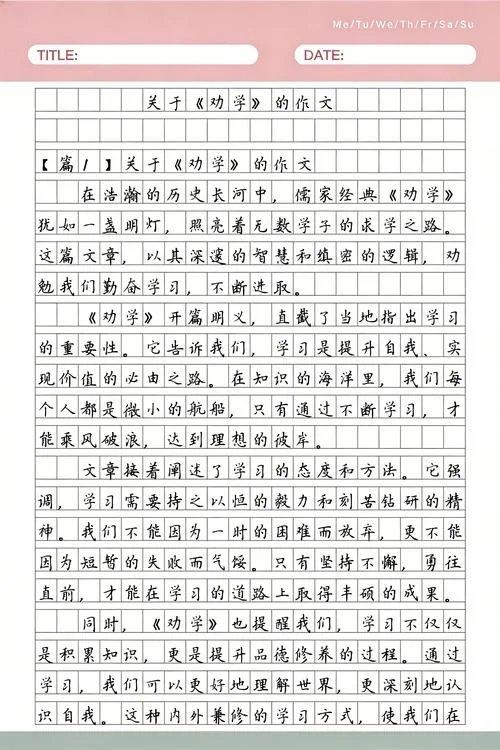 Me/Tu/We/Th/Fr/Sa/Su
TITLE:
DATE:
关于《劝学》的作文
【篇1】关于《劝学》的作文
在浩瀚的历史长河中，儒家经典《劝学》
犹如一盏明灯，照亮着无数学子的求学之路。
这篇文章，以其深邃的智慧和缜密的逻辑，劝
勉我们勤奋学习，不断进取。
《劝学》开篇明义，直截了当地指出学习
的重要性。它告诉我们，学习是提升自我、实
现价值的必由之路。在知识的海洋里，我们每
个人都是微小的航船，只有通过不断学习，才
能乘风破浪，达到理想的彼岸。
文章接着阐述了学习的态度和方法。它强
调，学习需要持之以恒的毅力和刻苦钻研的精
神。我们不能因为一时的困难而放弃，更不能
因为短暂的失败而气馁。只有坚持不懈，勇往
直前，才能在学习的道路上取得丰硕的成果。
同时，《劝学》也提醒我们，学习不仅仅
是积累知识，更是提升品德修养的过程。通过
学习，我们可以更好地理解世界，更深刻地认
识自我。这种内外兼修的学习方式，使我们在